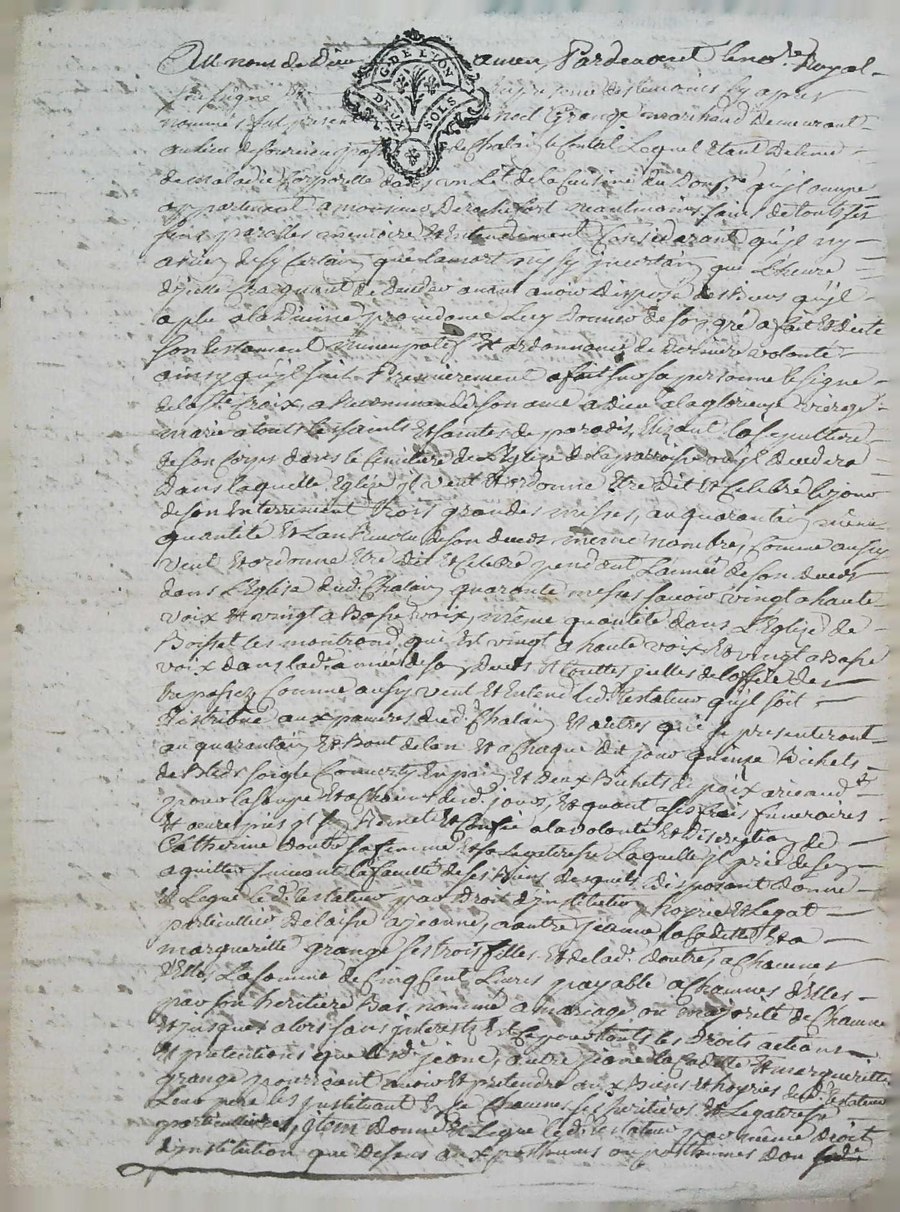 Au nom de Dieu amen, Pardevant le no.re Royal
G. DE LYON
DEUX SOLS
soussigné et en presence des temoins cy apres
nommés fut present noel Grange marchand demeurant
au lieu de de Chalain le Contal Lequel Etant detenu
de maladie Corporelle dans un Lit de la Cuisine du Dom.ne qu'jl occupe
appartenant a monsieur De rochefort neantmoins sains de touts ses
sens parolles memoire Et Entendement Considerant qu'jl ny
a rien de sy Certain que la mort ny sy jncertain que L'heure
d'jcelle Craignant de deceder avant avoir Disposé des Biens qu'jl
a plu a la Divine providance Luy Donner de son gré a fait Et dicté
son testament nuncupatif Et ordonnance de derniere volonté
ainsy qu'jl suit Premierement a fait sur sa personne le signe
de la S.te Croix, a Recommandé son ame a dieu a la glorieuse vierge
marie a touts les saints Et saintes de paradis, Elizant la sepulture
de son Corps dans le Cimetiere de L'Eglise de la parroisse ou jl decedera
Dans laquelle Eglise jl veut Et ordonne Etre dit Et Celebré le jour
de son Enterrement trois grandes messes, au quarantain même
quantité Et L'an Revolu de son deceds même nombre, Comme aussy
veut Et ordonne Etre dit Et Celebré pendant L'année de son deceds
dans L'Eglise dud. Chalain quarante messes savoir vingt a haute
voix Et vingt a Basse voix, même quantité dans L'Eglise de
Boisset les montrond qui Est vingt a haute voix Et vingt a Basse
voix dans lad. année de son deceds Et touttes jcelles de L'office des
trepassez, Comme aussy veut Et Entend led. testateur qu'jl soit
distribué aux pauvres dud. Chalain Et autres qui se presenteront
au quarantain Et Bout de l'an Et a Chaque dit jour quinze Bichets
de Bled soigle Converty En pain Et deux Bichets de poix
pour la soupe Et a Chacun desd. jours, Et quant a ses frais funeraires
Et œuvres pies jl s'en Remet Et Confie a la volonté Et discretion de
Catherine doutre sa femme Et sa Legataresse Laquelle jl prie de s'en
aquitter suivant la faculté de ses Biens desquels Disposant donne
Et Legue led. testateur par Droit d'jnstitution hoyrie Et Legat
particulier delaisse a jeanne, autre jeanne la Cadette Et a
margueritte grange ses trois filles Et de lad. doutre, a Chacunes
d'Elles La somme de Cinq Cents Livres payable a Chacunes d'Elles
par son heritiere Bas nommé a mariage ou majorité de Chacune
Et jusques alors sans jnterests Et Ce pour touts les Droits actions
Et pretentions que lesd. jeanne, autre jeanne la Cadette Et marguerite
grange pourroient avoir Et pretendre aux Biens Et hoyries dud. testateur
Leur pere les jnstituant En Ce Chacunes ses heritieres Et Legataresse
particulieres, jtem donne Et Legue led. testateur par même droit
d'jnstitution que dessus aux posthumes ou posthumes dont